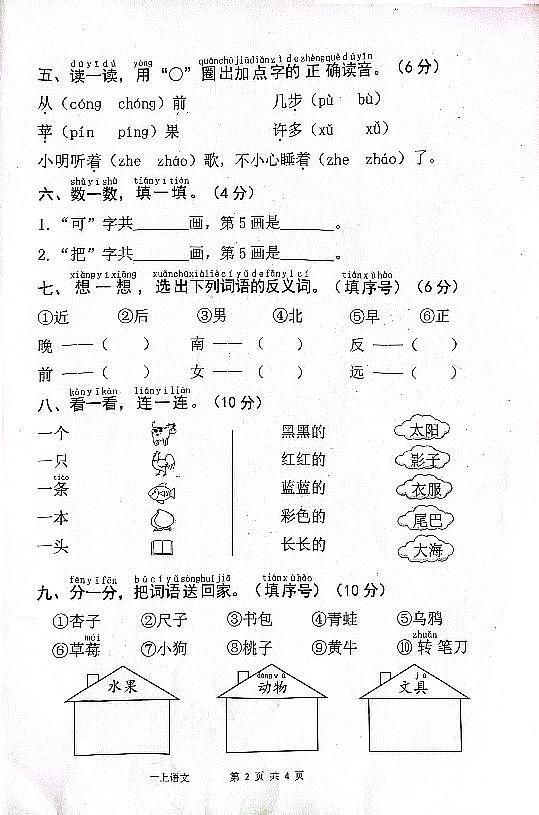 dú yī dú yòng quān chū jiā diǎn zì de zhèng què dú yīn
五、读一读，用“○”圈出加点字的正确读音。（6分）
从（cóng chóng）前 几步（pù bù）
苹（pín píng）果 许多（xǔ xǚ）
小明听着（zhe zháo）歌，不小心睡着（zhe zháo）了。
shǔ yī shǔ tián yī tián
六、数一数，填一填。（4分）
1. “可”字共______画，第5画是______。
2. “把”字共______画，第5画是______。
xiǎng yī xiǎng xuǎn chū xià liè cí yǔ de fǎn yì cí tián xù hào
七、想一想，选出下列词语的反义词。（填序号）（6分）
①近 ②后 ③男 ④北 ⑤早 ⑥正
晚 ——（ ） 南 ——（ ） 反 ——（ ）
前 ——（ ） 女 ——（ ） 远 ——（ ）
kàn yī kàn lián yī lián
八、看一看，连一连。（10分）
一个 黑黑的 太阳
一只 红红的 影子
tiáo
一条 蓝蓝的 衣服
一本 彩色的 尾巴
一头 长长的 大海
fēn yī fēn bǎ cí yǔ sòng huí jiā tián xù hào
九、分一分，把词语送回家。（填序号）（10分）
①杏子 ②尺子 ③书包 ④青蛙 ⑤乌鸦
méi zhuàn
⑥草莓 ⑦小狗 ⑧桃子 ⑨黄牛 ⑩转笔刀
dòng wù jù
水果 动物 文具
一上语文 第2页共4页